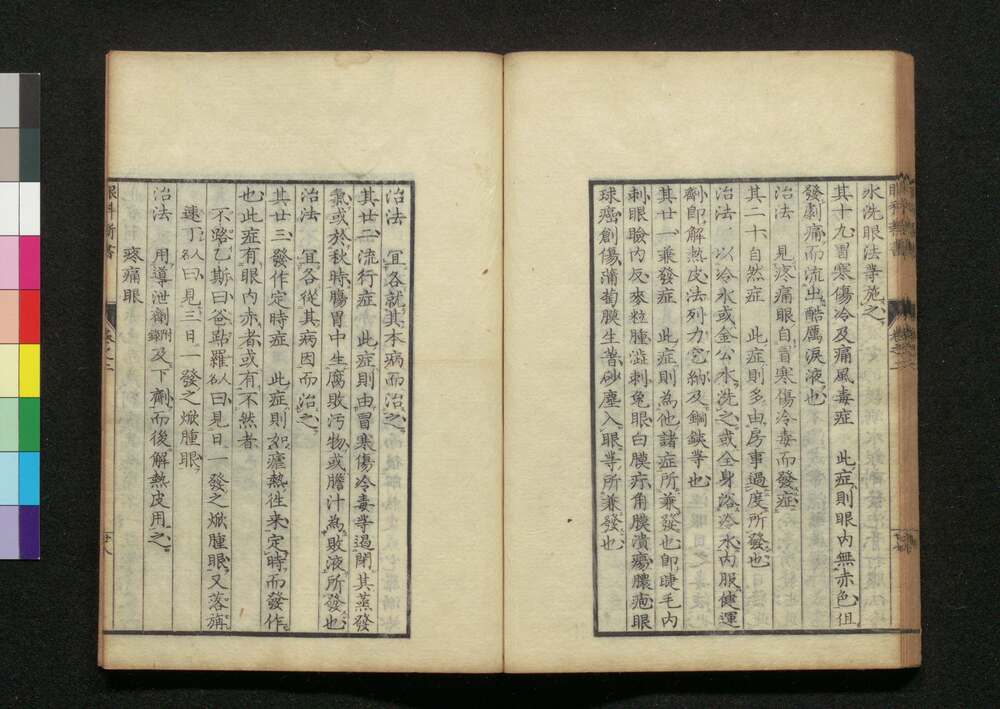 水洗眼法等施之
其十九冒寒傷冷及痛風毒症 此症則眼内無赤色但
發劇痛而流出酷厲淚液也
治法 見疼痛眼自冒寒傷冷毒而發症
其二十自然症 此症則多由房事過度所發也
治法 以冷水或金公水洗之或全身浴冷水内服健運
劑即解熱皮法列力亞納及鋼鐵等也
其廿一兼發症 此症則為他諸症所兼發也即睫毛内
刺眼瞼内反麥粒腫澁刺兔眼白膜疔角膜潰瘍膿疱眼
球癌創傷蒲萄膜生昔砂塵入眼等所兼發也
治法 宜各就其本病而治之
其廿二流行症 此症則由冒寒傷冷毒等過閉其蒸發
氣或於秋時腸胃中生腐敗污物或膽汁為敗液所發也
治法 宜各從其病因而治之
其廿三發作定時症 此症則如瘧熱往来定時而發作
也此症有眼内赤者或有不然者
不路乙斯曰谷點羅以曰見日一發之焮腫眼又落旃
速丁以曰見三日一發之焮腫眼
治法 用導泄劑及下劑而後解熱皮用之
疼痛眼
眼科新書
卷之二
廿八